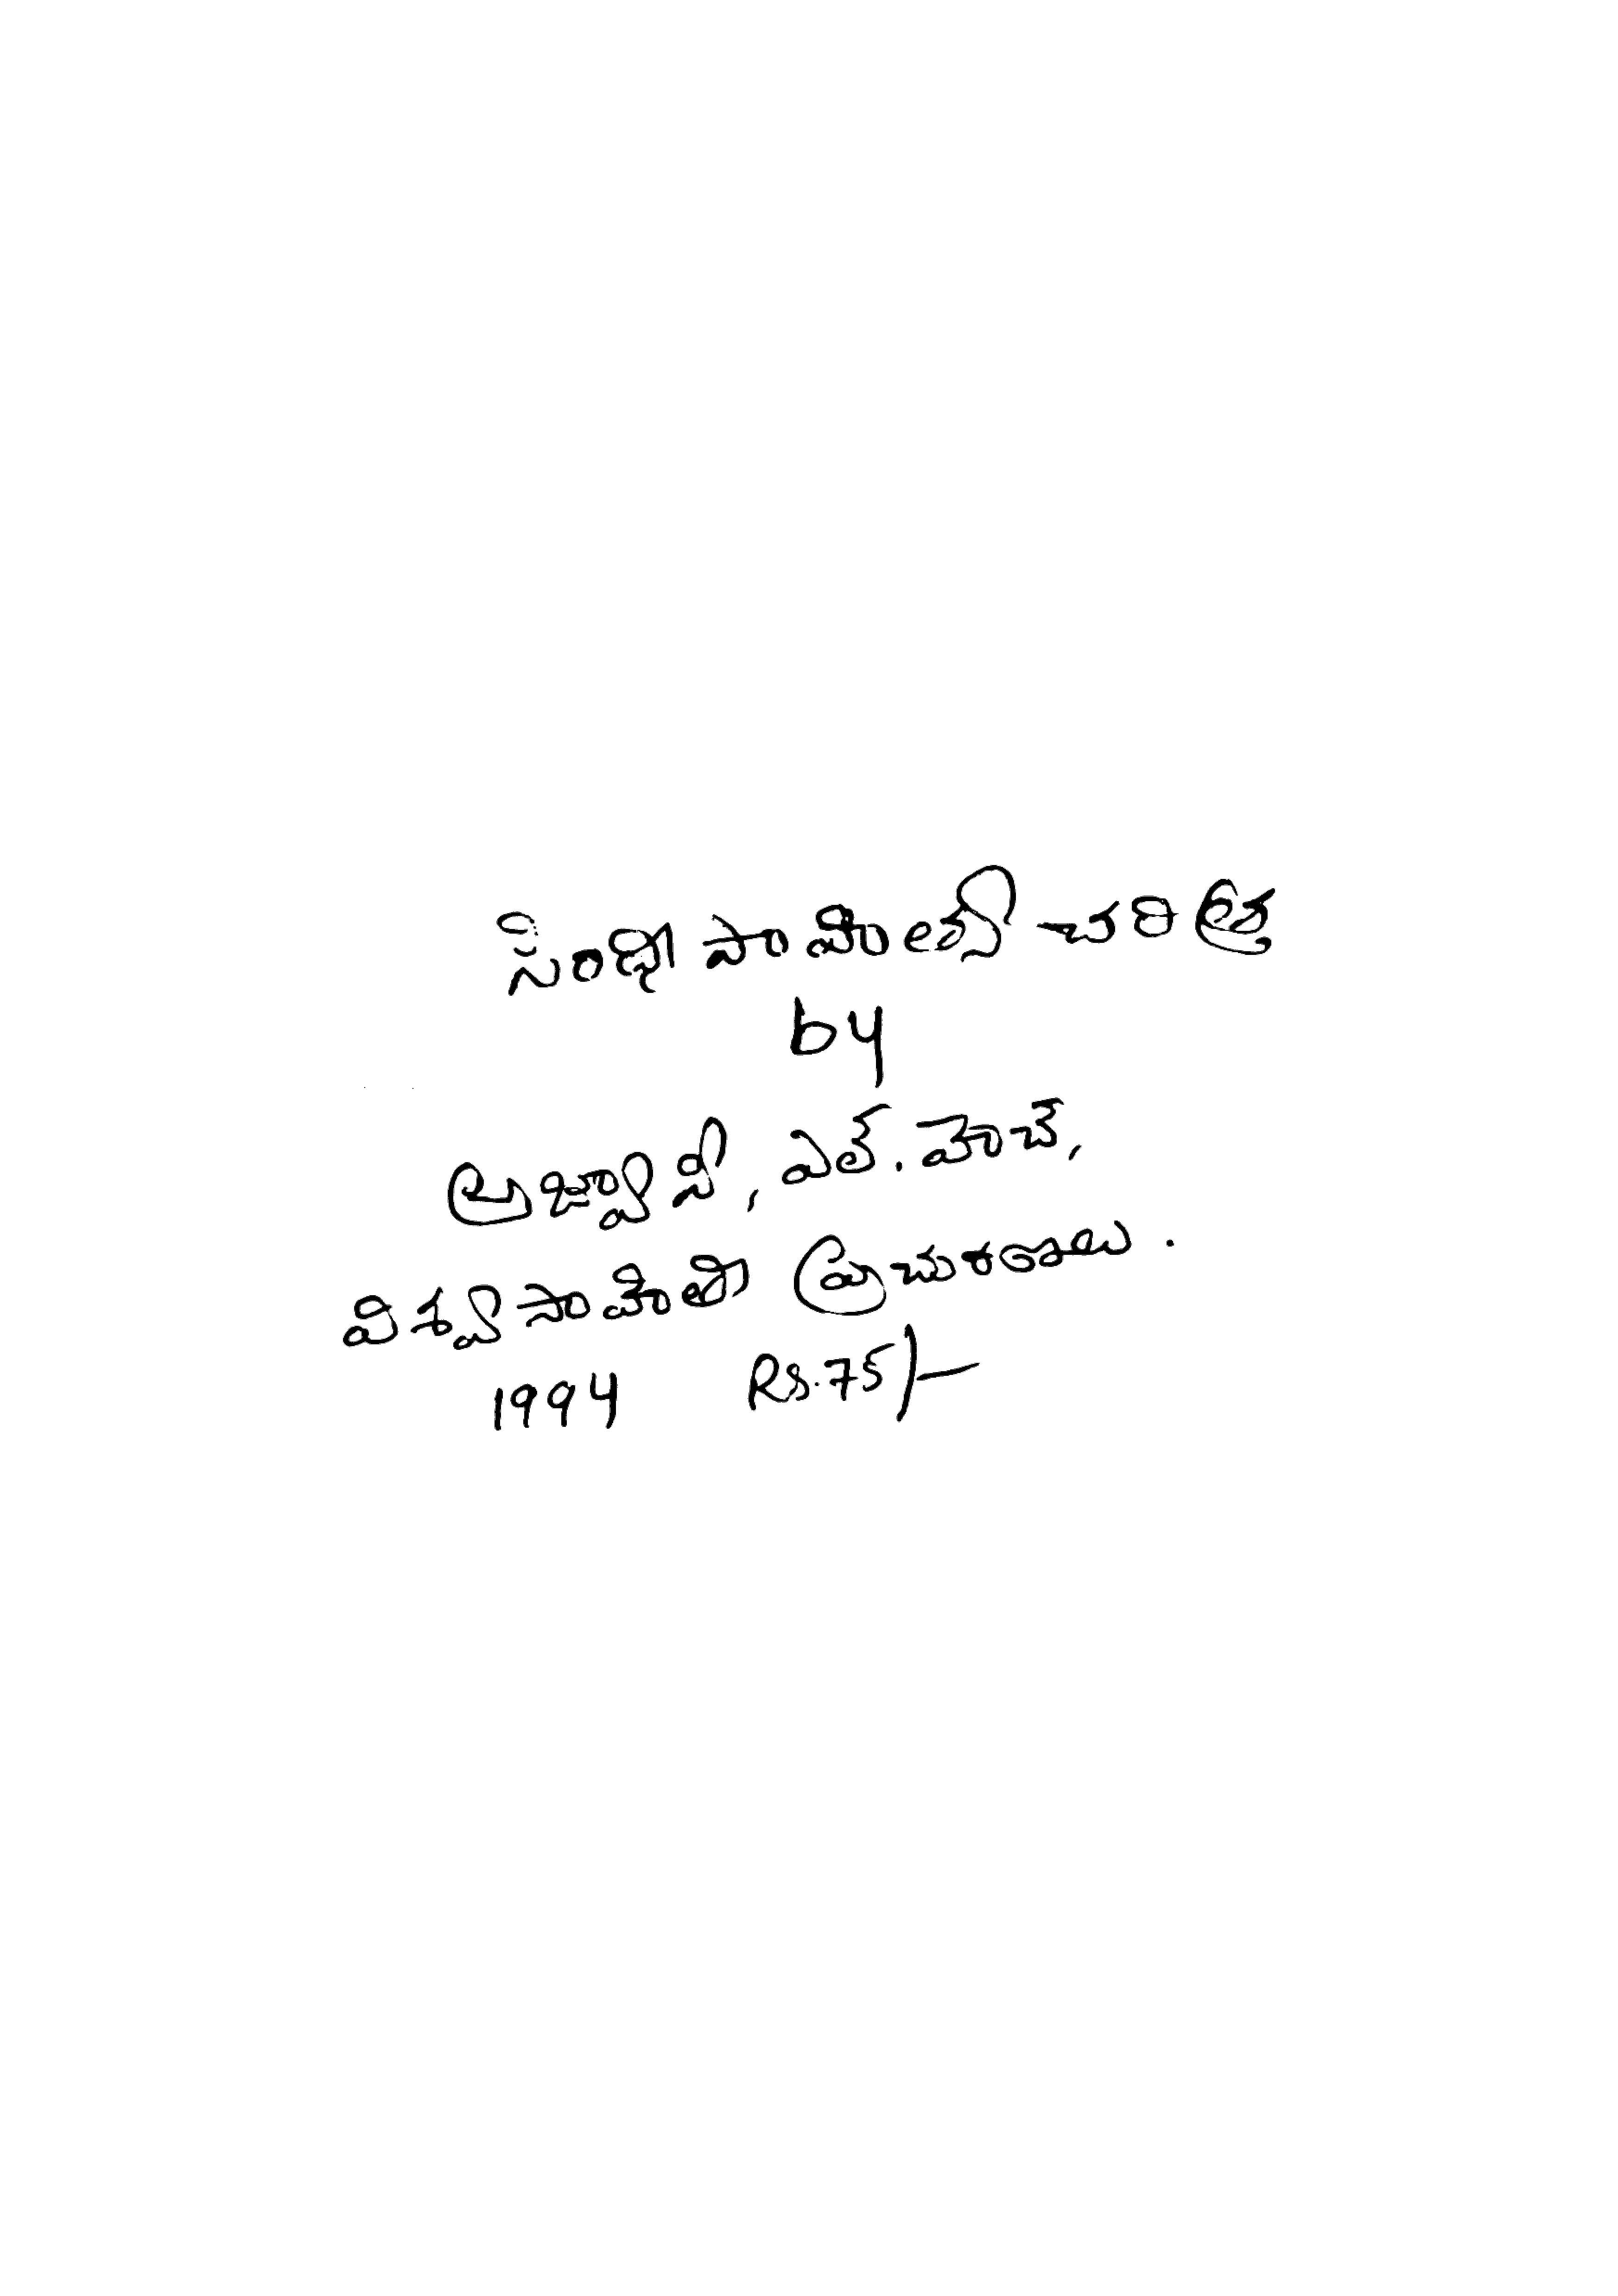 సింధీ సాహిత్య చరిత్ర
by
అజ్వానీ, ఎల్. హెచ్,
విశ్వసాహితి ప్రచురణలు.
1994 Rs.75/-